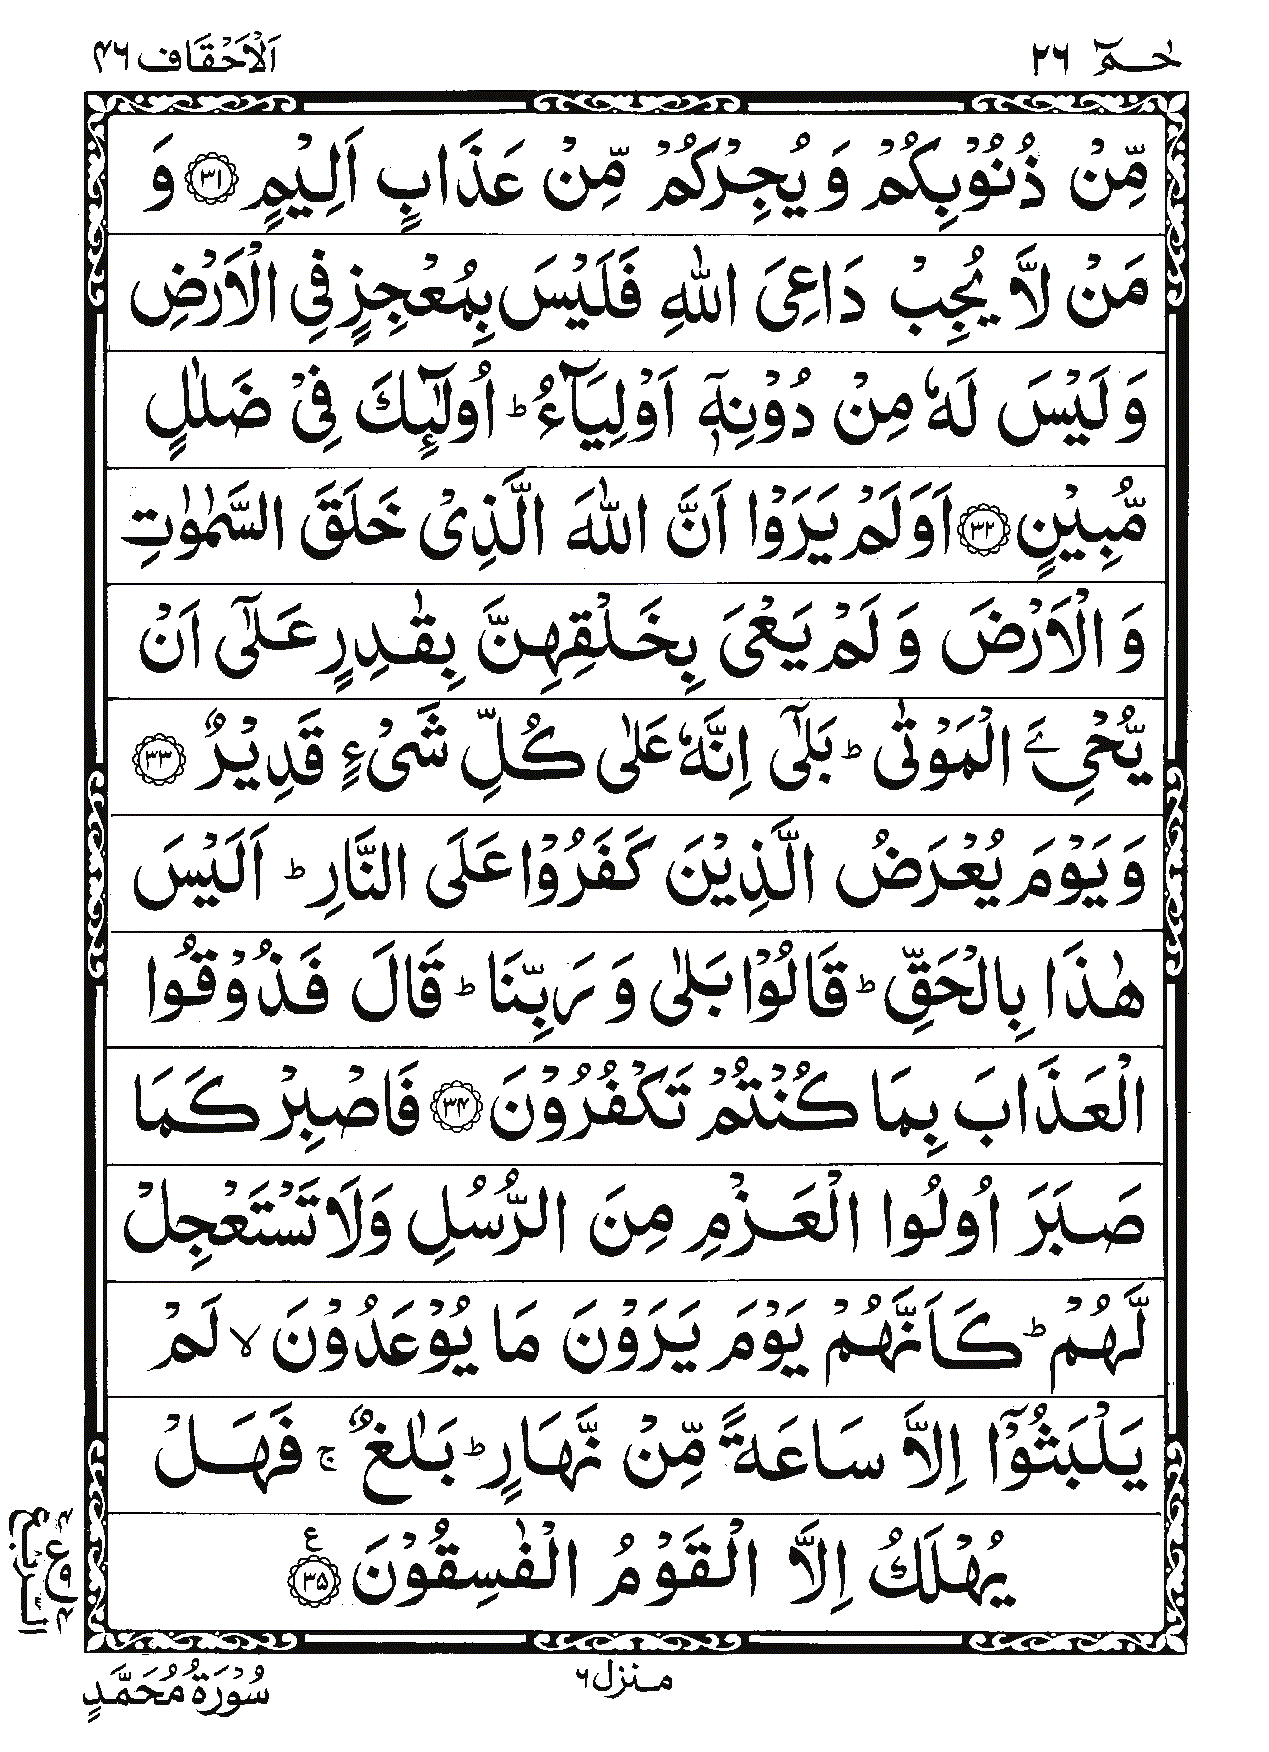 حٰمٓ ٢٦
اَلْاَحْقَاف ٤٦
مِّنْ ذُنُوْبِكُمْ وَ يُجِرْكُمْ مِّنْ عَذَابٍ اَلِيْمٍ ﴿۳۱﴾ وَ
مَنْ لَّا يُجِبْ دَاعِىَ اللّٰهِ فَلَيْسَ بِمُعْجِزٍ فِى الْاَرْضِ
وَ لَيْسَ لَهٗ مِنْ دُوْنِهٖۤ اَوْلِيَآءُ ؕ اُولٰٓئِكَ فِىْ ضَلٰلٍ
مُّبِيْنٍ ﴿۳۲﴾ اَوَلَمْ يَرَوْا اَنَّ اللّٰهَ الَّذِىْ خَلَقَ السَّمٰوٰتِ
وَ الْاَرْضَ وَ لَمْ يَعْىَ بِخَلْقِهِنَّ بِقٰدِرٍ عَلٰٓى اَنْ
يُّحْیِۦَ الْمَوْتٰى ؕ بَلٰٓى اِنَّهٗ عَلٰى كُلِّ شَىْءٍ قَدِيْرٌ ﴿۳۳﴾
وَ يَوْمَ يُعْرَضُ الَّذِيْنَ كَفَرُوْا عَلَى النَّارِ ؕ اَلَيْسَ
هٰذَا بِالْحَقِّ ؕ قَالُوْا بَلٰى وَ رَبِّنَا ؕ قَالَ فَذُوْقُوا
الْعَذَابَ بِمَا كُنْتُمْ تَكْفُرُوْنَ ﴿۳۴﴾ فَاصْبِرْ كَمَا
صَبَرَ اُولُوا الْعَزْمِ مِنَ الرُّسُلِ وَلَا تَسْتَعْجِلْ
لَّهُمْ ؕ كَاَنَّهُمْ يَوْمَ يَرَوْنَ مَا يُوْعَدُوْنَ ۙ لَمْ
يَلْبَثُوْۤا اِلَّا سَاعَةً مِّنْ نَّهَارٍ ؕ بَلٰغٌ ۚ فَهَلْ
يُهْلَكُ اِلَّا الْقَوْمُ الْفٰسِقُوْنَ ﴿۳۵﴾ ع
الربع
منزل ٦
سُوْرَةُ مُحَمَّدٍ